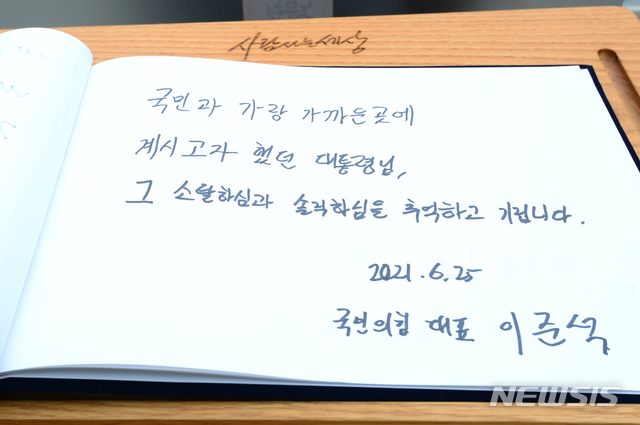 사람사는세상
국민과 가랑 가까운곳에
계시고자 했던 대통령님,
그 소탈하심과 솔직하심을 추억하고 기립니다.
2021.6.25
국민의힘 대표 이준석
NEWSIS